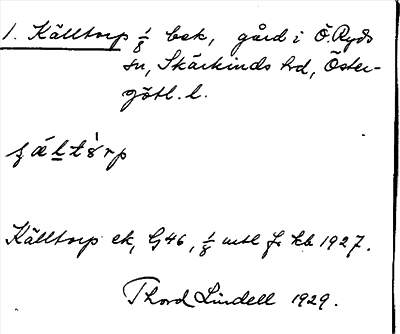 1. Källtorp 1/8 bsk, gård i Ö. Ryds
sn, Skärkinds hd, Öster-
götl. l.
Källtorp ek, G 46, 1/8 mtl fr kb 1927.
Thord Lindell 1929.